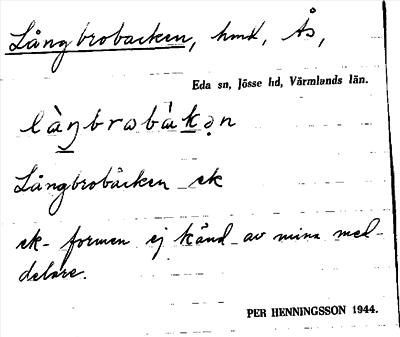 Långbrobacken, hmd, Ås,
Eda sn, Jösse hd, Värmlands län.
làŋbrobàkən
Långbrobäcken ek
ek-formen ej känd av mina med-
delare.
PER HENNINGSSON 1944.